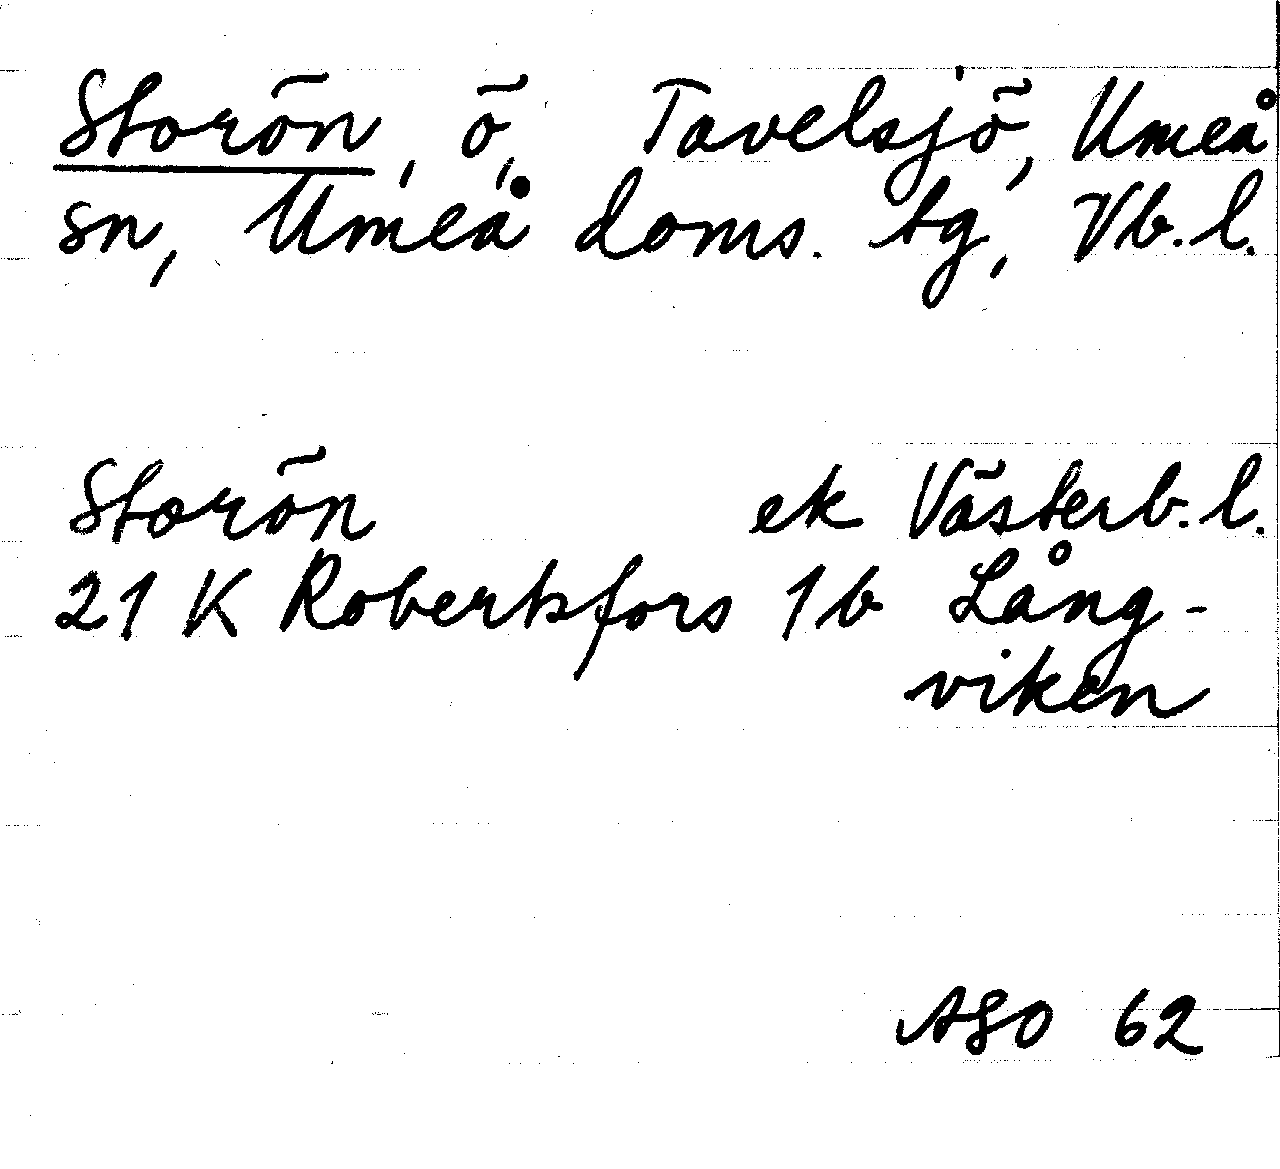 Storön, ö, Tavelsjö, Umeå
sn, Umeå doms. tg, Vb. l.
Storön ek Västerb. l.
21 K Robertsfors 1 b Lång-
viken
ASO 62